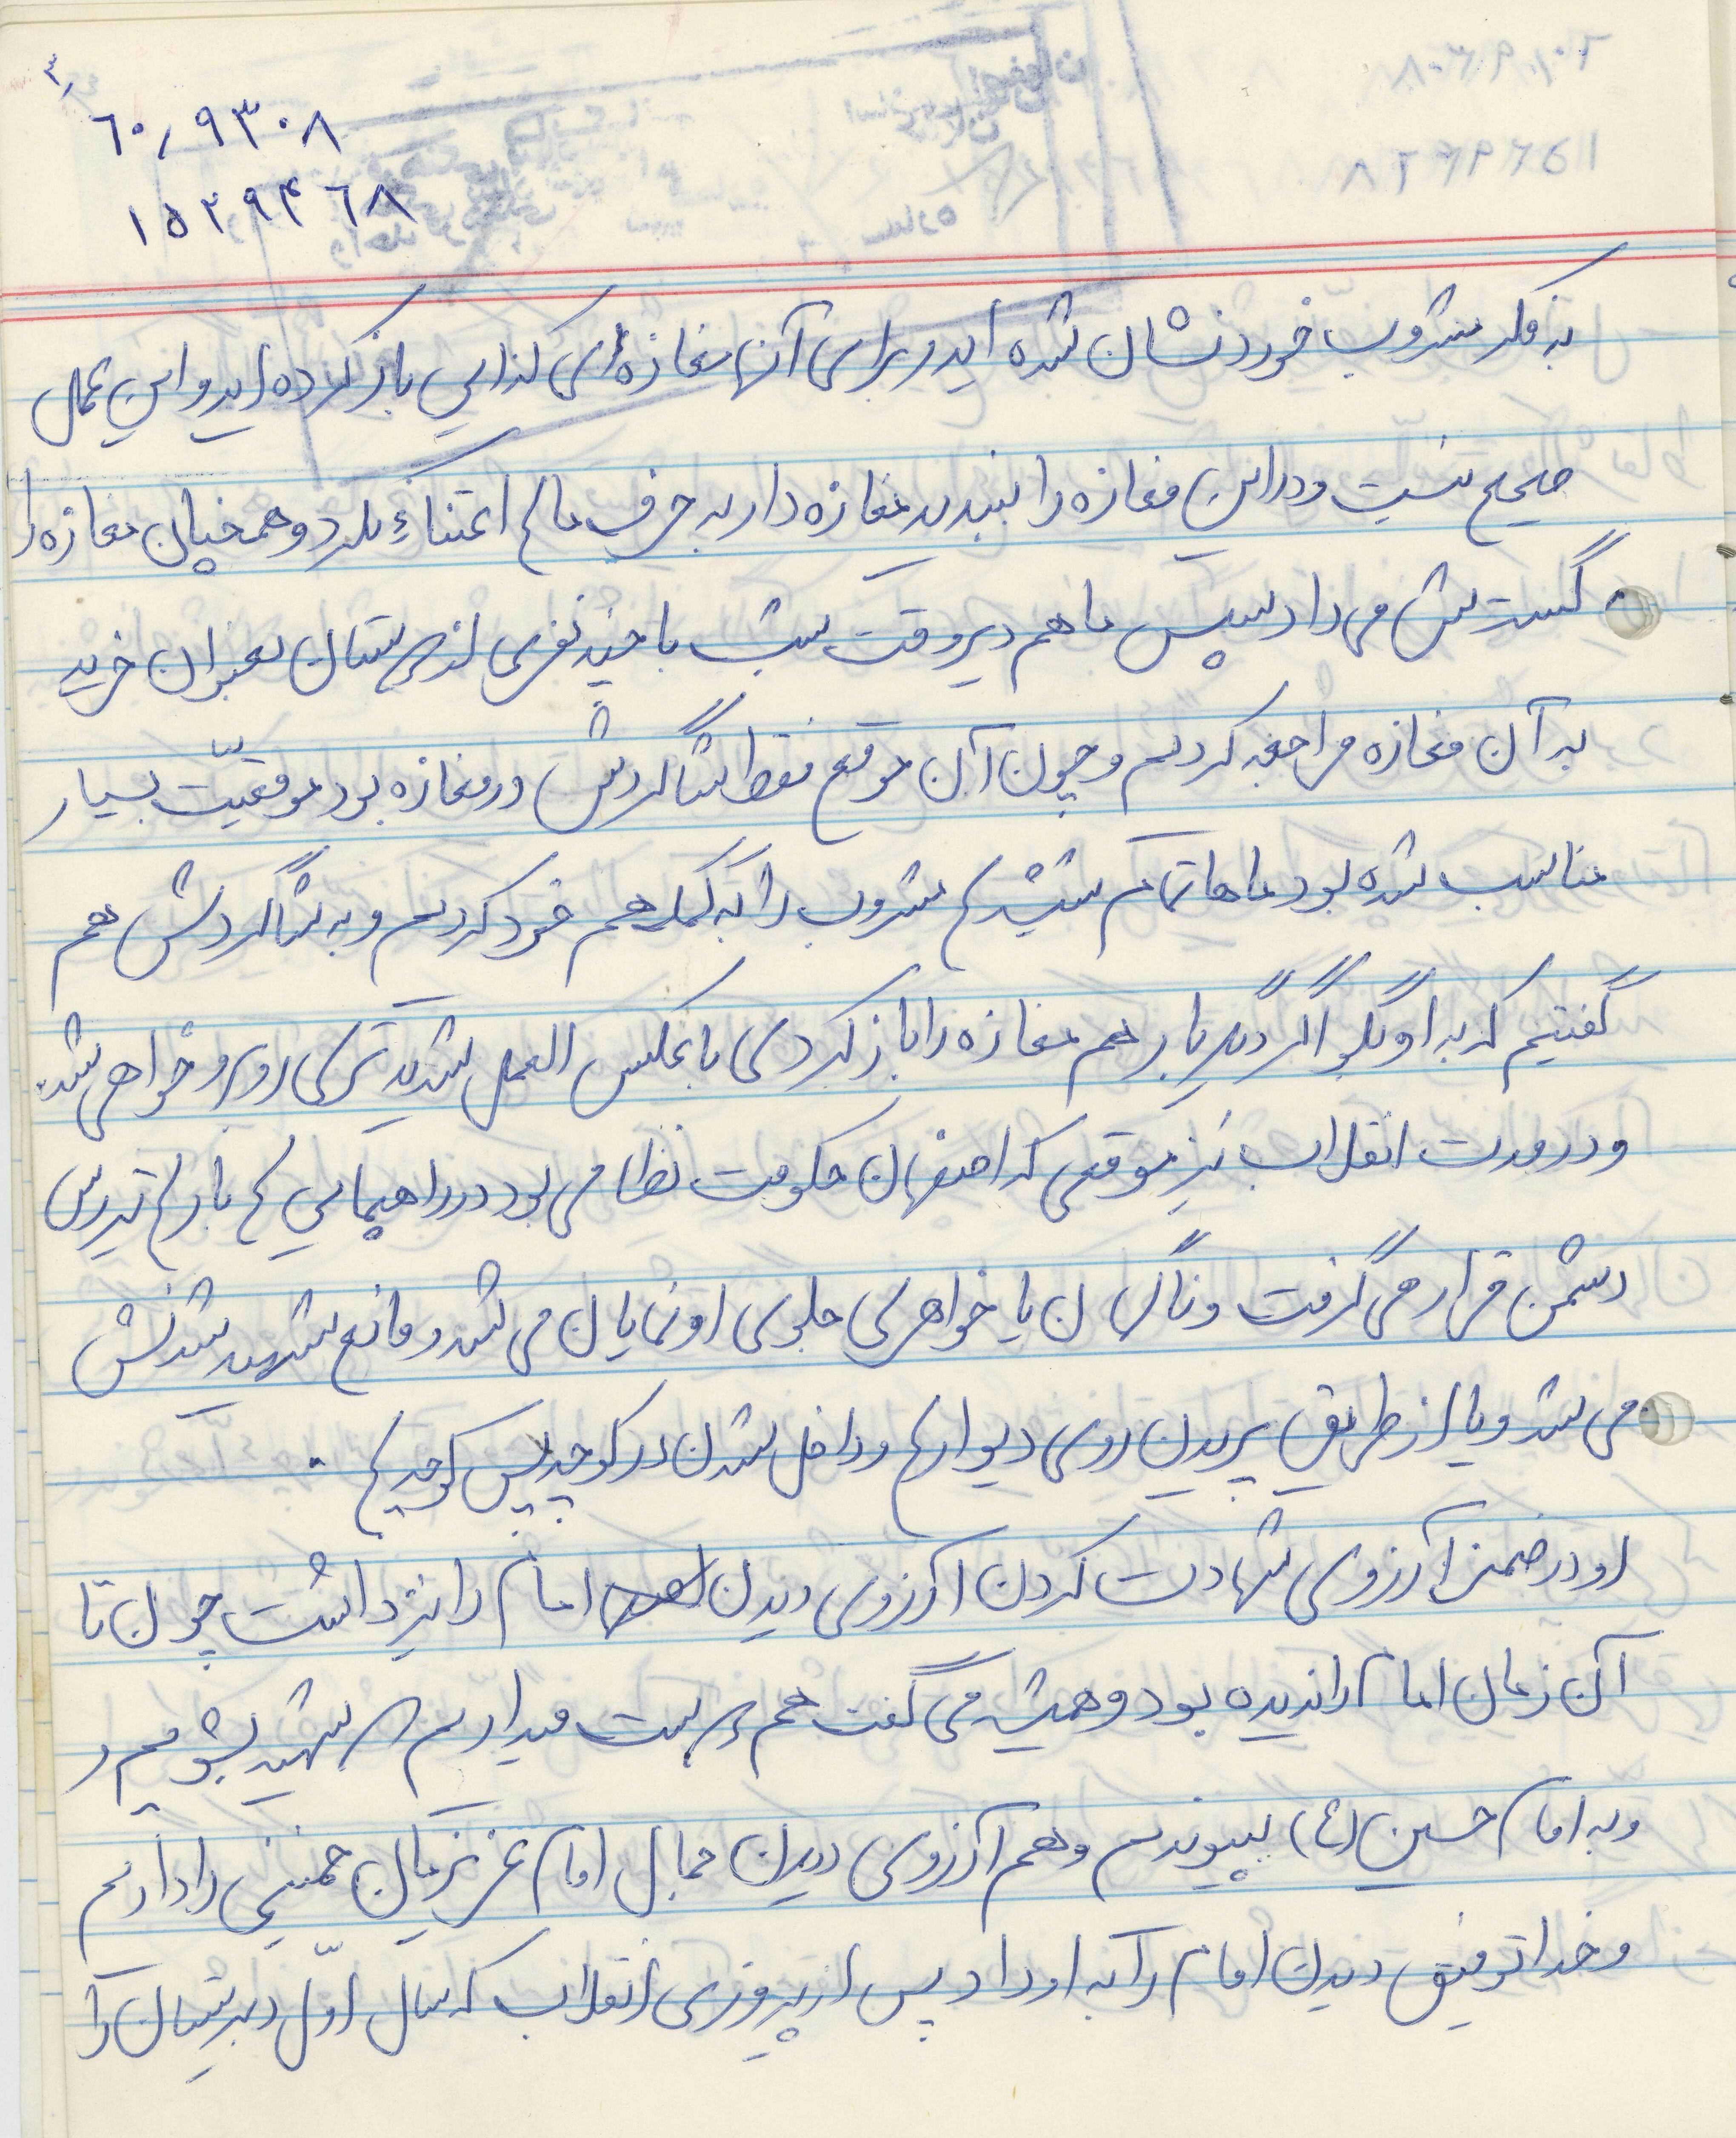 ۳
۶۰٫۹۳۰۸
۱۵۲۹۴۶۸
به فکر مشروب خوردنشان شده اید و برای آنها مغازه ای کذایی باز کرده اید و این عمل
صحیح نیست و در این مغازه را ببندید مغازه دار به حرف ما ها اعتناء نکرد و همچنان مغازه را
گسترش می داد سپس ما هم دیر وقت شب با چند نفری از دوستان بعنوان خرید
به آن مغازه مراجعه کردیم و چون آن موقع فقط شاگردش در مغازه بود موقعیّت بسیار
مناسب شده بود ماها تمام شیشه های مشروب را به کمک هم خورد کردیم و به شاگردش هم
گفتیم که به او بگو اگر دیگر بار هم مغازه را باز کردی با عکس العمل شدیدتری روبرو خواهی شد.
و در مدت انقلاب نیز موقعی که اصفهان حکومت نظامی بود در راهپیمایی ها بارها تیررس
دشمن قرار می گرفت و ناگهان یا خواهری جلوی او نمایان می شد و مانع شهید شدنش
می شد و یا از طریق پریدن روی دیوارها و داخل شدن در کوچه پس کوچه ها .
او در ضمن آرزوی شهادت کردن آرزوی دیدن امام را نیز داشت چون تا
آن زمان امام را ندیده بود و همیشه می گفت هم دوست میدارم که شهید بشویم و
و به امام حسین (ع) بپیوندیم و هم آرزوی دیدن جمال امام عزیزمان خمینی را داریم
و خدا توفیق دیدن امام را به او داد پس از پیروزی انقلاب که سال اوّل دبیرستان را